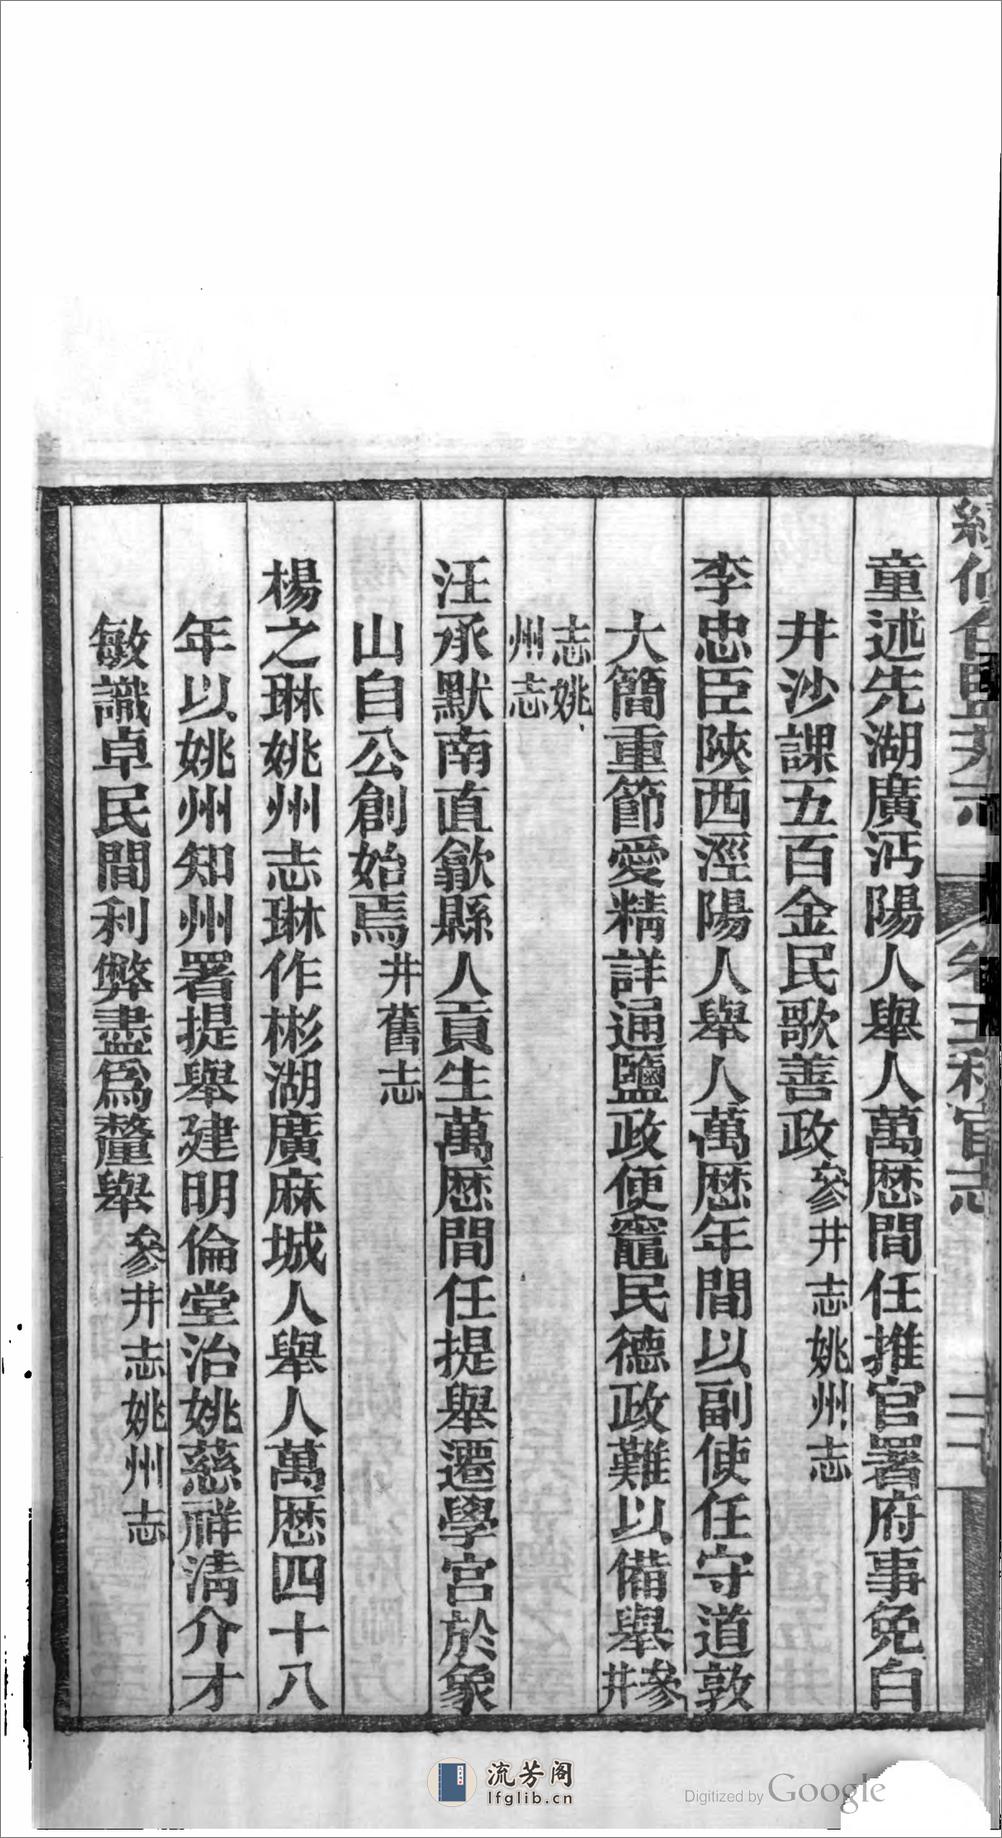 童述先湖廣沔陽人舉人萬歷間任推官署府事免白
井沙課五百金民歌善政參井志姚州志
李忠臣陝西涇陽人舉人萬歷年間以副使任守道敦
大簡重節愛精詳通鹽政便竈民德政難以備舉參井
志姚州志
汪承默南直歙縣人貢生萬歷間任提舉遷學宮於象
山自公創始焉井舊志
楊之琳姚州志琳作彬湖廣麻城人舉人萬歷四十八
年以姚州知州署提舉建明倫堂治姚慈祥淸介才
敏識卓民間利弊盡爲釐舉參井志姚州志
流芳阁
lfglib.cn
Digitized by Google